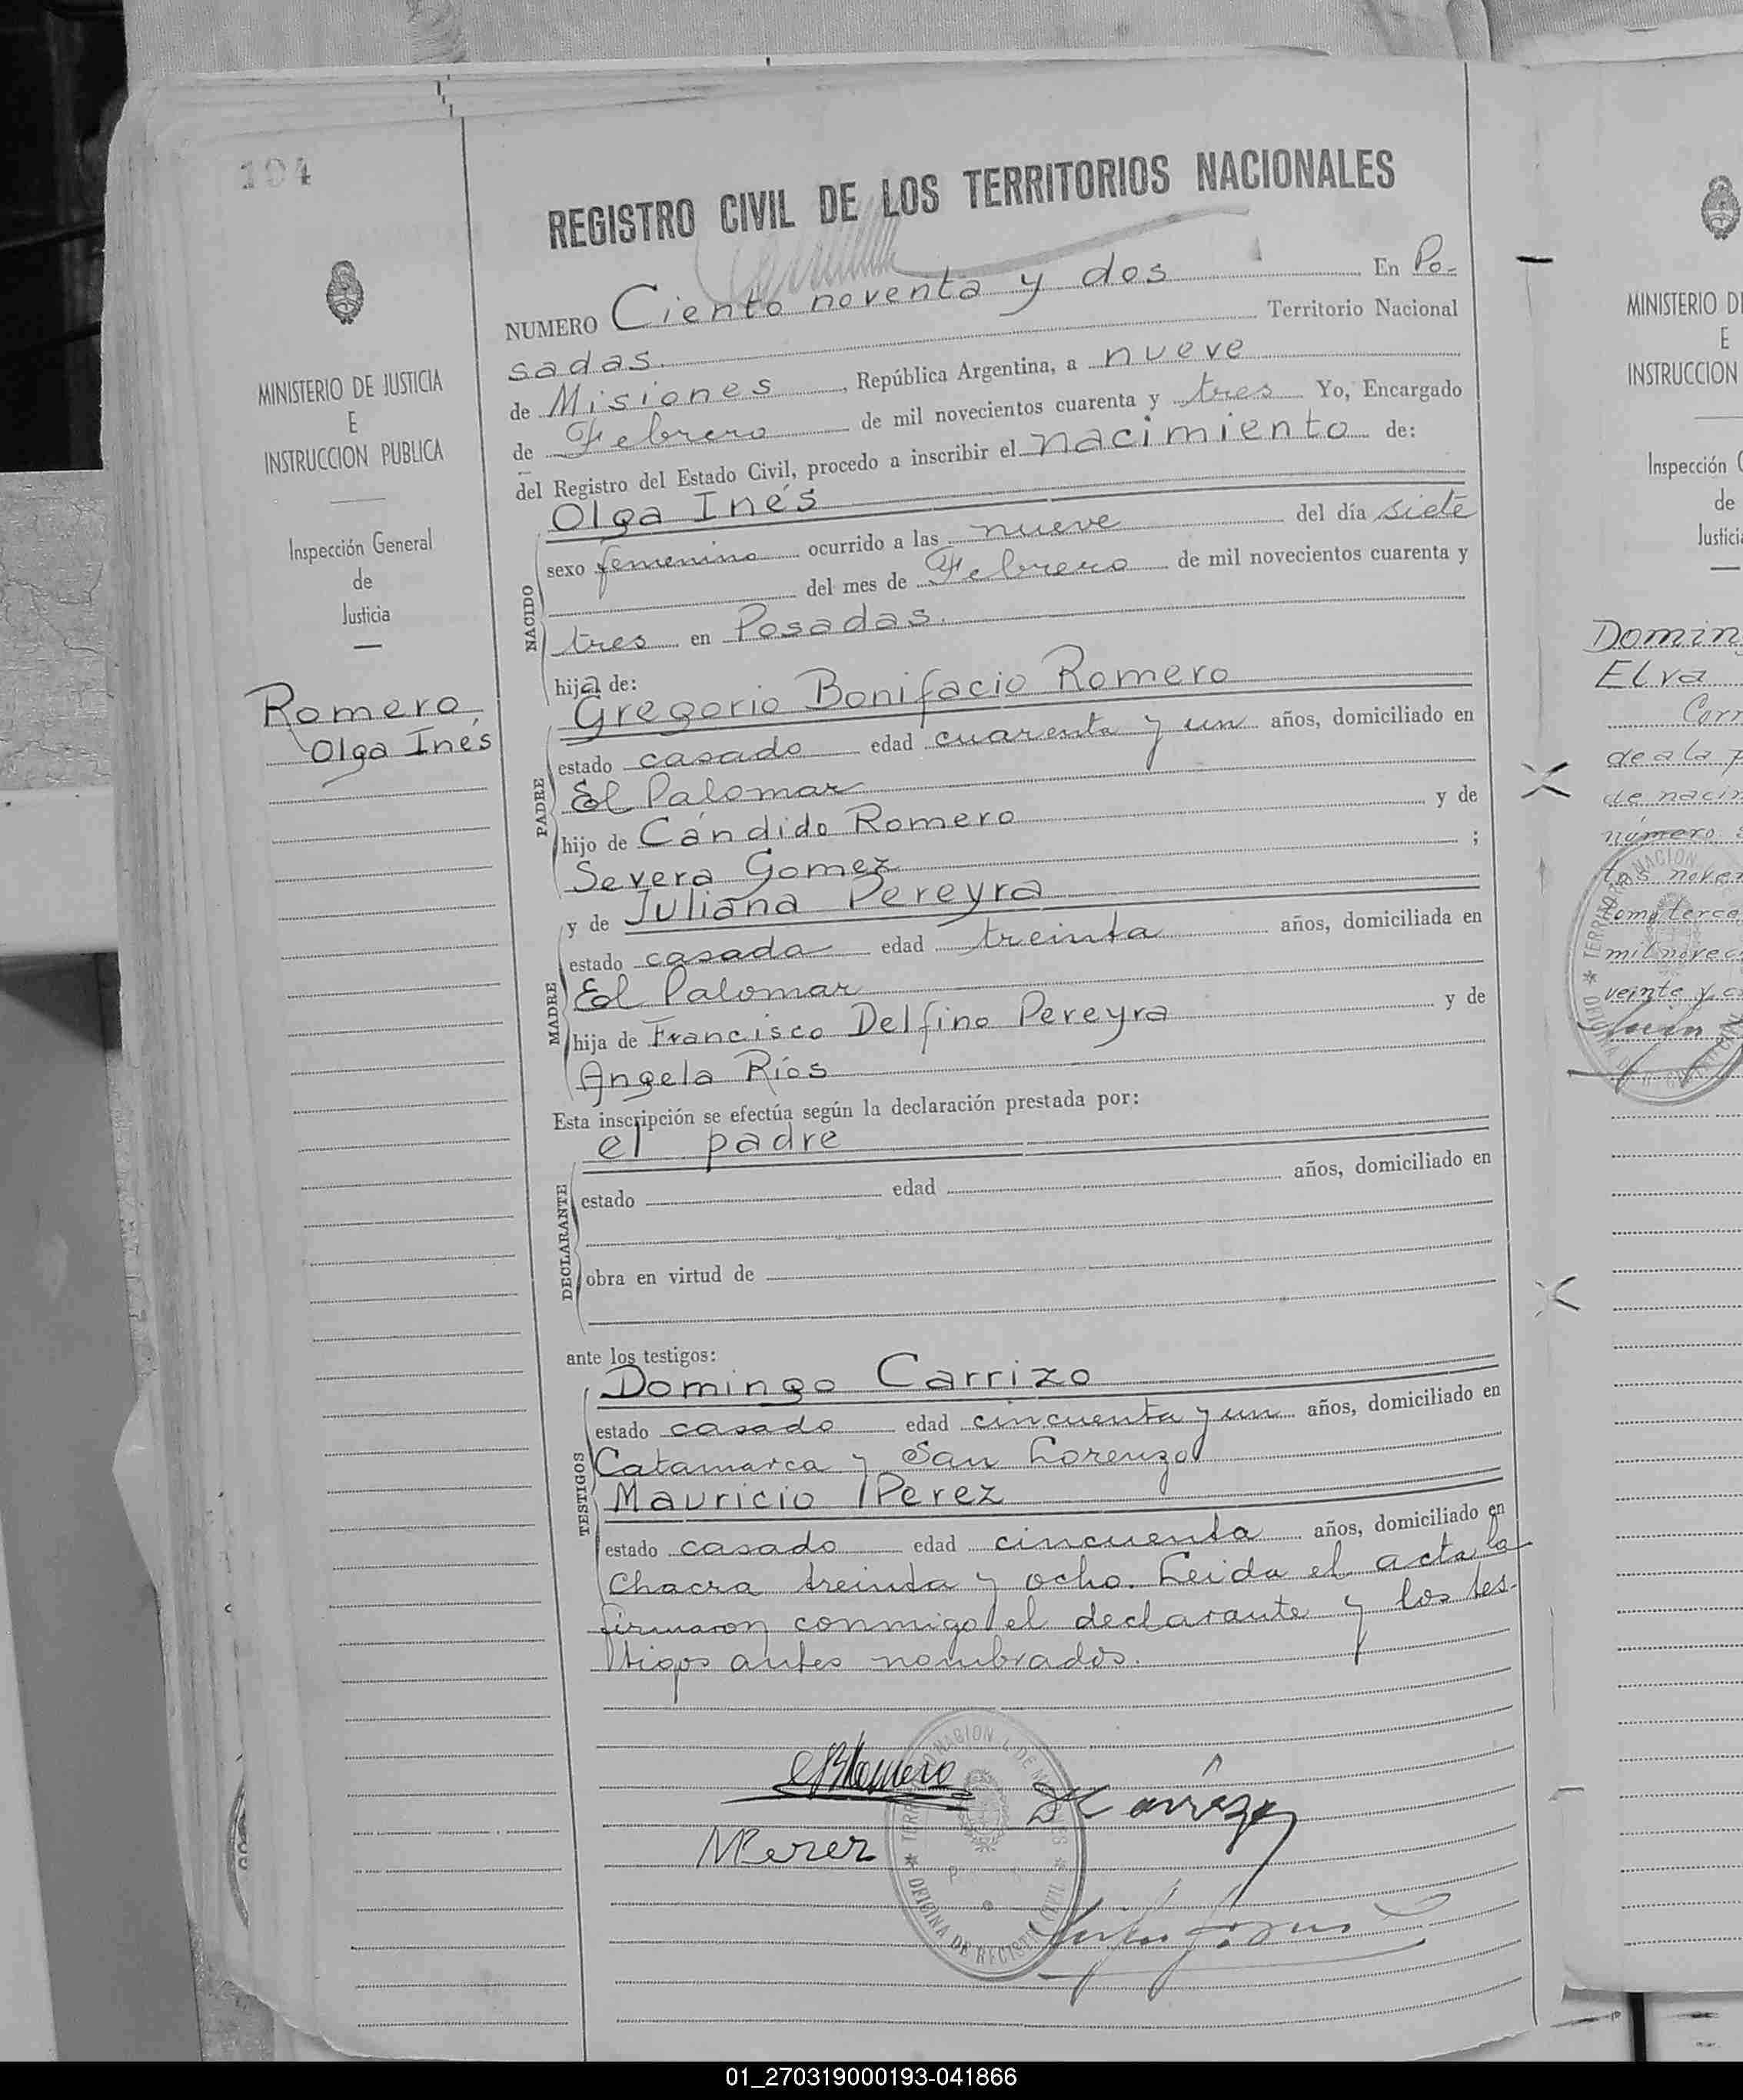 104
REGISTRO CIVIL DE LOS TERRITORIOS NACIONALES
MINISTERIO DE JUSTICIA
E
INSTRUCCION PUBLICA
Inspección General
de
Justicia
Romero,
Olga Inés
NUMERO Ciento noventa y dos En Po-
sadas. Territorio Nacional
de Misiones, República Argentina, a nueve
de Febrero de mil novecientos cuarenta y tres Yo, Encargado
del Registro del Estado Civil, procedo a inscribir el nacimiento de:
Olga Inés
NACIDO
sexo femenino ocurrido a las nueve del día siete
del mes de Febrero de mil novecientos cuarenta y
tres en Posadas.
hija de:
Gregorio Bonifacio Romero
PADRE
estado casado edad cuarenta y un años, domiciliado en
El Palomar
hijo de Cándido Romero y de
Severa Gomez ;
y de Juliana Pereyra
MADRE
estado casada edad treinta años, domiciliada en
El Palomar
hija de Francisco Delfino Pereyra y de
Angela Ríos
Esta inscripción se efectúa según la declaración prestada por:
el padre
DECLARANTE
estado edad años, domiciliado en
obra en virtud de
ante los testigos:
Domingo Carrizo
TESTIGOS
estado casado edad cincuenta y un años, domiciliado en
Catamarca y San Lorenzo
Mauricio Perez
estado casado edad cincuenta años, domiciliado en
Chacra treinta y ocho. Leida el acta la
firmaron conmigo el declarante y los tes-
tigos antes nombrados.
GBRomero
DCarrizo
MPerez
OFICINA DE REGISTRO CIVIL
MINISTERIO DE
E
INSTRUCCION
Inspección G
de
Justicia
Domin
Elva
Corr
de a la p
de nacim
número s
tos noven
tomo terce
mil novec
veinte y c
01_270319000193-041866